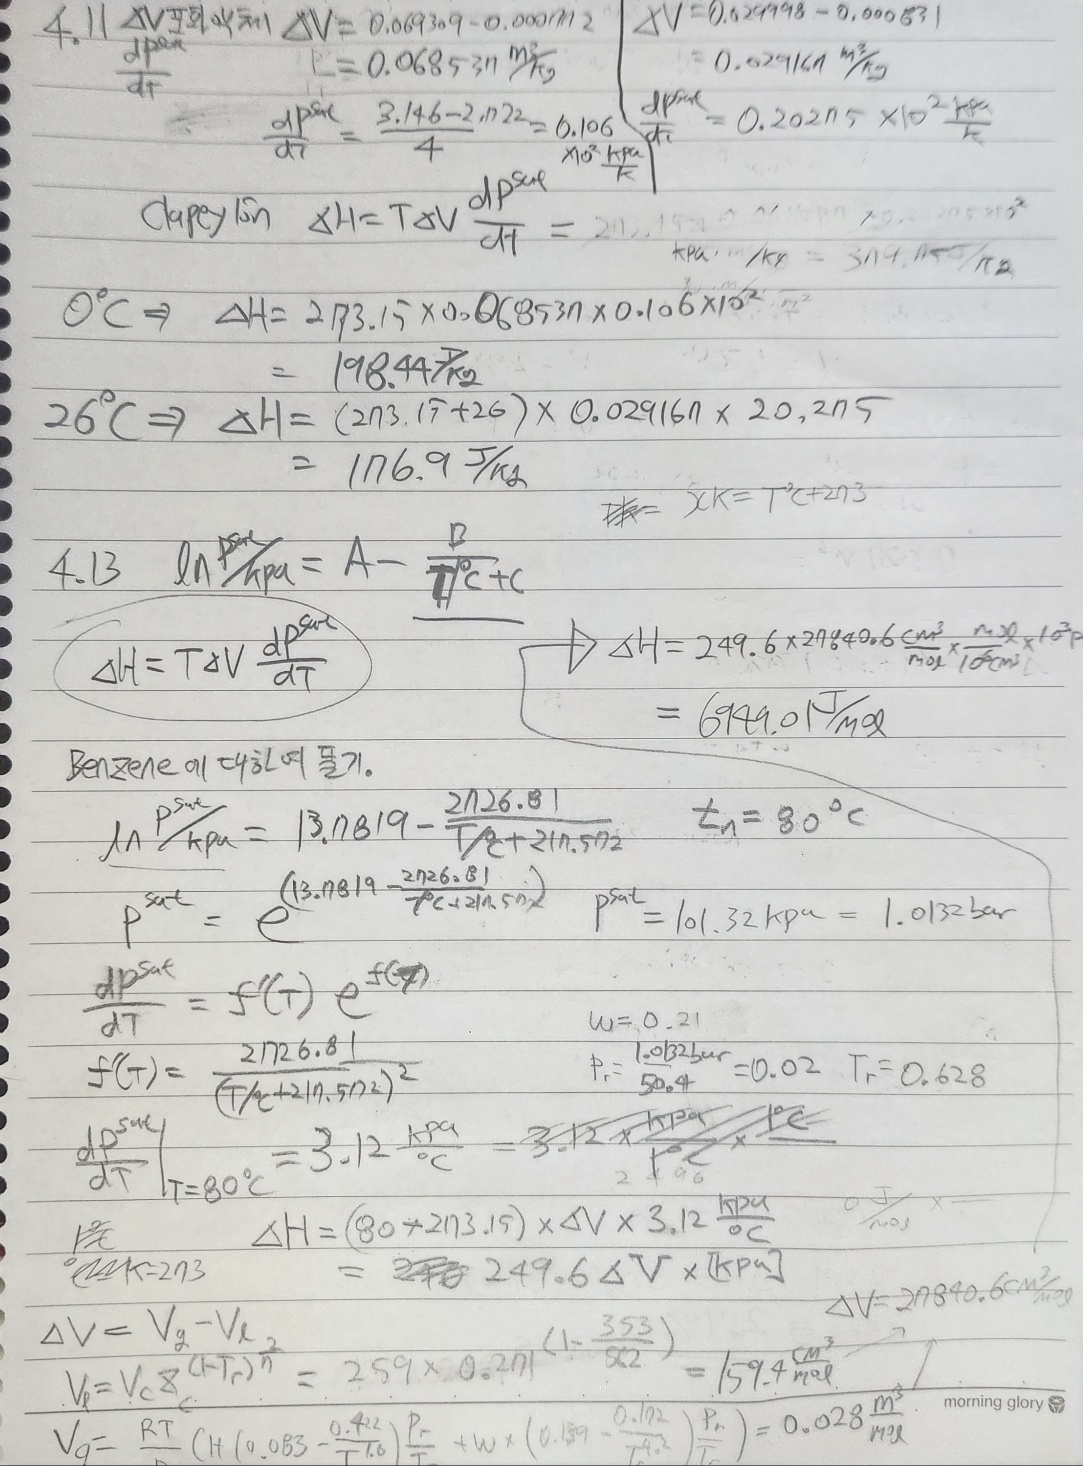 4.11 ΔV ΔV = 0.069309 - 0.000772
dPsat/dT = 0.068537 m³/kg
dPsat/dT = (3.146 - 2.722)/4 = 0.106 ×10² kPa/K
ΔV = 0.029998 - 0.000831
= 0.029167 m³/kg
dPsat/dT = 0.20275 × 10² kPa/K
Clapeylon ΔH = TΔV dPsat/dT =
0°C ⇒ ΔH = 273.15 × 0.068537 × 0.106 × 10²
= 198.44 J/kg
26°C ⇒ ΔH = (273.15+26) × 0.029167 × 20,275
= 176.9 J/kg
= xK = T°C + 273
4.13 ln Psat/kPa = A - B/(T/°C + C)
ΔH = TΔV dPsat/dT
▷ ΔH = 249.6 × 27840.6 cm³/mol × mol/10⁶cm³ × 10³P
= 6949.01 J/mol
Benzene에 대하여 풀기.
ln Psat/kPa = 13.7819 - 2726.81/(T/°C + 217.572) tn = 80°C
Psat = e^(13.7819 - 2726.81/(T/°C + 217.572)) Psat = 101.32 kPa = 1.0132 bar
dPsat/dT = f'(T) e^f(T)
ω = 0.21
f'(T) = 2726.81/(T/°C + 217.572)² Pr = 1.0132bar/50.4 = 0.02 Tr = 0.628
dPsat/dT |T=80°C = 3.12 kPa/°C = 3.12 × kPa/1°C × 1°C
ΔH = (80+273.15) × ΔV × 3.12 kPa/°C
K=273 = 249.6 ΔV × [kPa]
ΔV = 27840.6 cm³/mol
ΔV = Vg - Vl
Vl = Vc Zc^(1-Tr)^2/7 = 259 × 0.271^(1 - 353/562) = 159.4 cm³/mol
morning glory
Vg = RT (1+(0.083 - 0.422/T^1.6) Pr/T + ω × (0.139 - 0.172/T^4.2) Pr/T) = 0.028 m³/mol